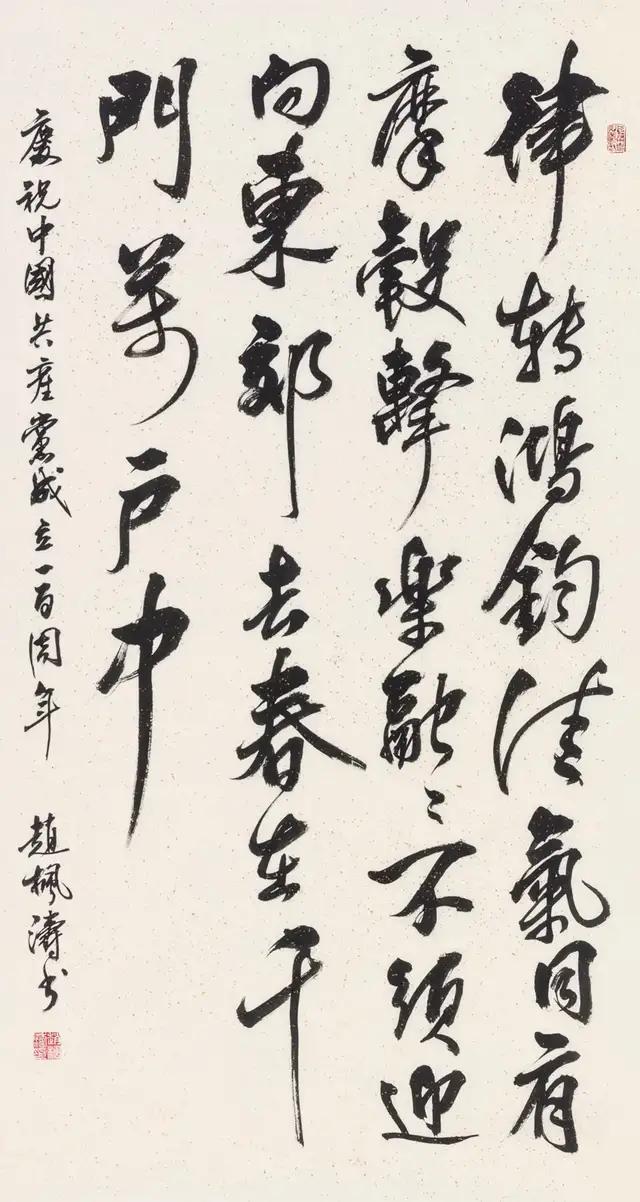 律转鴻鈞佳氣同肩
摩轂擊樂融〻不須迎
向東郊去春在千
門萬戶中
慶祝中國共產黨成立一百周年 趙楓濤书